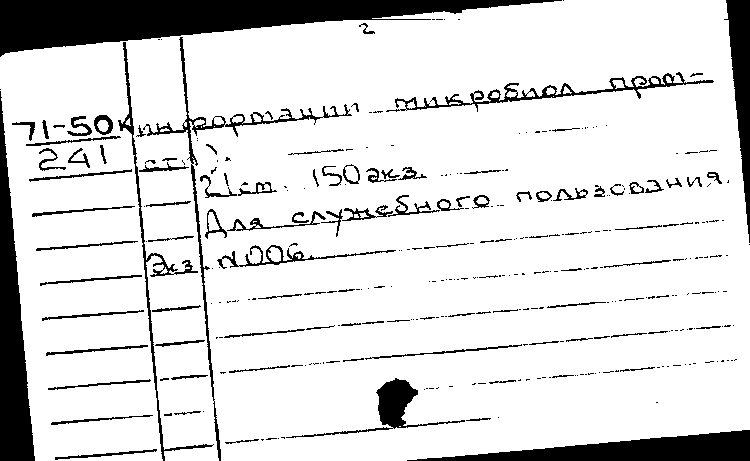 2
71-50К информации микробиол. пром-
241 сти).
21см. 150экз.
Для служебного пользования.
Экз. №006.